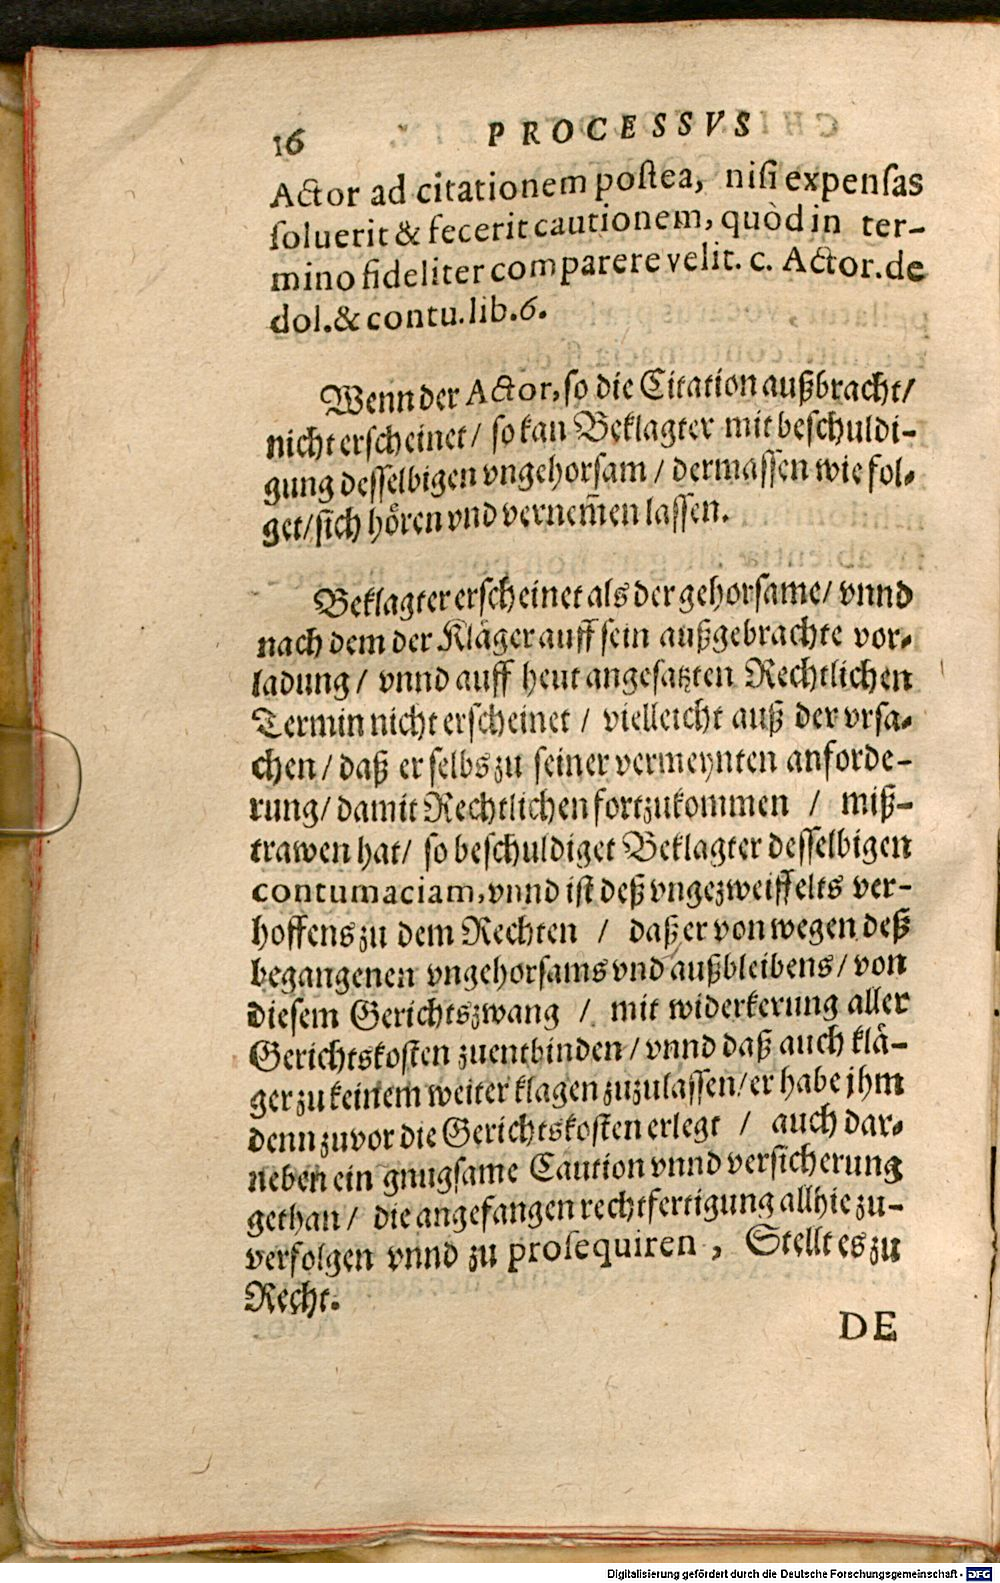 16 PROCESSVS
Actor ad citationem postea, nisi expensas
soluerit & fecerit cautionem, quòd in ter-
mino fideliter comparere velit. c. Actor. de
dol. & contu. lib. 6.
Wenn der Actor, so die Citation außbracht/
nicht erscheinet / so kan Beklagter mit beschuldi-
gung desselbigen vngehorsam / dermassen wie fol-
get/ sich hören vnd vernem̃en lassen.
Beklagter erscheinet als der gehorsame/ vnnd
nach dem der Kläger auff sein außgebrachte vor-
ladung / vnnd auff heut angesatzten Rechtlichen
Termin nicht erscheinet / vielleicht auß der vrsa-
chen / daß er selbs zu seiner vermeynten anforde-
rung/ damit Rechtlichen fortzukommen / miß-
trawen hat/ so beschuldiget Beklagter desselbigen
contumaciam, vnnd ist deß vngezweiffelts ver-
hoffens zu dem Rechten / daß er von wegen deß
begangenen vngehorsams vnd außbleibens / von
diesem Gerichtszwang / mit widerkerung aller
Gerichtskosten zuentbinden / vnnd daß auch klä-
ger zu keinem weiter klagen zuzulassen/ er habe jhm
denn zuvor die Gerichtskosten erlegt / auch dar-
neben ein gnugsame Caution vnnd versicherung
gethan / die angefangen rechtfertigung allhie zu-
verfolgen vnnd zu prosequiren, Stellt es zu
Recht.
DE
Digitalisierung gefördert durch die Deutsche Forschungsgemeinschaft - DFG